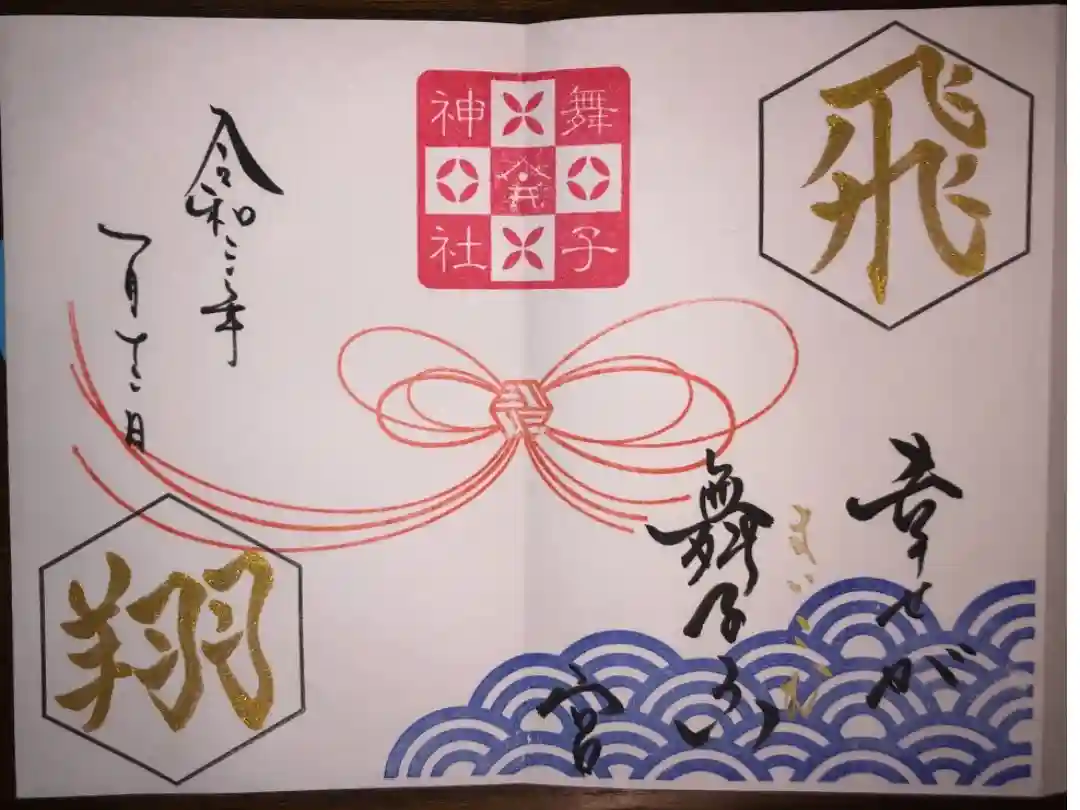 飛
幸せが
まいこむ
舞子む
宮
舞子
神社
令和三年
一月十二日
翔